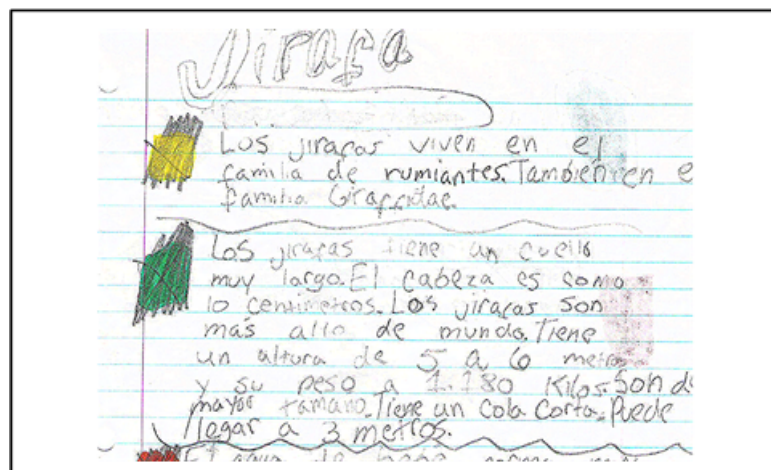 Jirafa
Los jirafas viven en el
familia de rumiantes. También en e
familia Giraffidae.
Los jirafas tiene un cuello
muy largo. El cabeza es somo
10 centimetros. Los jirafas son
más alto de mundo. Tiene
un altura de 5 a 6 metros
y su peso a 1.180 Kilos. Son de
mayor tamano. Tiene un cola corta. Puede
llegar a 3 metros.
El agua de bebe